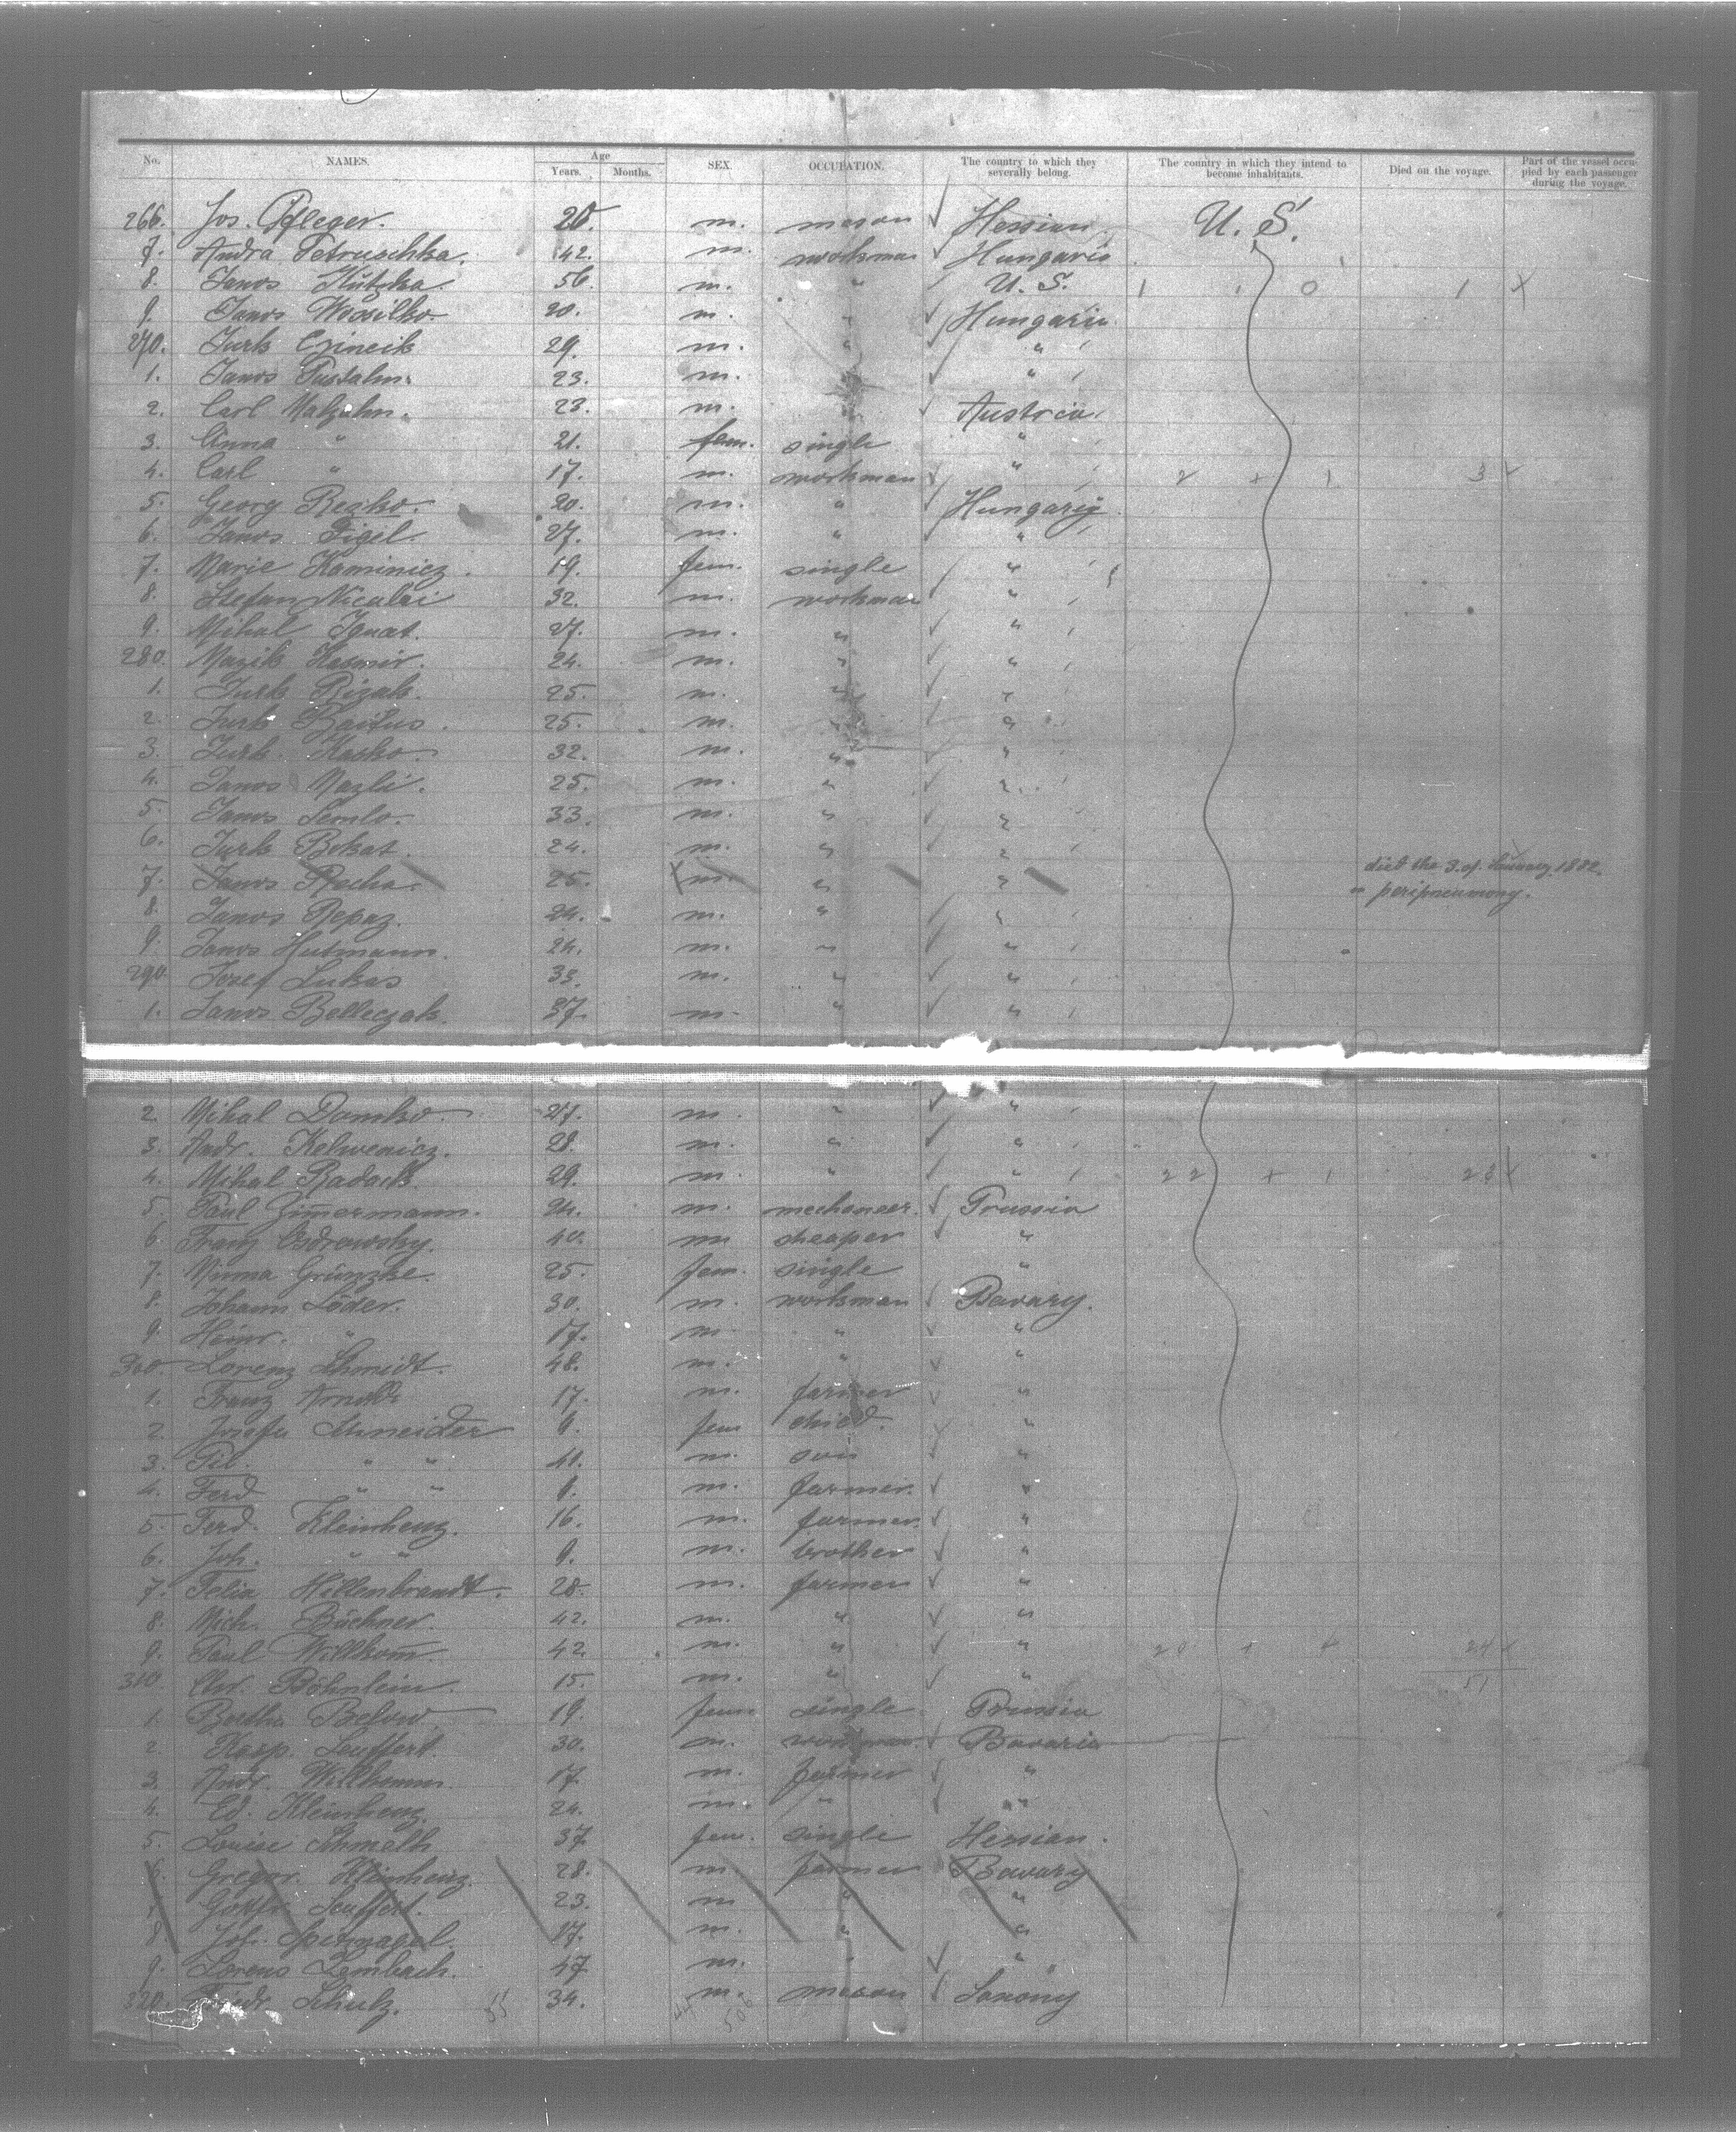 No. NAMES. Age Years. Months. SEX. OCCUPATION. The country to which they severally belong. The country in which they intend to become inhabitants. Died on the voyage. Part of the vessel occupied by each passenger during the voyage.
266. Jos. Pfleger. 20. m. mason Hessian. U. S.
7. Andra Petruschka. 42. m. workman Hungaria
8. Janos Kutzka 56. m. " U. S. 1 1 0 1
9. Janos 20. m. " Hungaria
270. Jurk 29. m. " "
1. Janos 23. m. " "
2. Carl Malzahn. 23. m. " Austria
3. Anna " 21. fem. single "
4. Carl " 17. m. workman " 2 + 1 3
5. Georg Rezko. 20. m. " Hungary
6. Janos Figel. 27. m. " "
7. Marie Kaminicz. 19. fem. single "
8. Stefan Niculai 32. m. workman "
9. Mihal Ignat. 27. m. " "
280. Mazik Kasmir. 24. m. " "
1. Jurk Rizak. 25. m. " "
2. Jurk Baitus. 25. m. " "
3. Jurk Kasko. 32. m. " "
4. Janos Nazli. 25. m. " "
5. Janos Semlo. 33. m. " "
6. Jurk Bokat. 24. m. " "
7. Janos Racha. 25. m. " " died the 3. of January 1882.
" peripneumony.
8. Janos Repaz. 24. m. " "
9. Janos Hutmann. 24. m. " "
290. Josef Lukas 33. m. " "
1. Janos Belleczak. 37. m. " "
2. Mihal Damko. 27. m. " "
3. Andr. Kelwenicz. 28. m. " "
4. Mihal Radack. 29. m. " " 22 + 1 23
5. Paul Zimermann. 24. m. mechaneer. Prussia
6. Franz Osdrowsky. 40. m. "
7. Minna Grünzke. 25. fem. single "
8. Johann Löder. 30. m. workman Bavary.
9. Heinr. " 17. m. " "
300. Lorenz Schmidt. 48. m. " "
1. Franz Arnold 17. m. farmer "
2. Josefa Schneider 9. fem child. "
3. " " m. son "
4. Ferd " " 9. m. farmer. "
5. Ferd. Kleinhenz. 16. m. farmer. "
6. Joh. " " 9. m. brother "
7. Felix Hillenbrandt. 28. m. farmer "
8. Mich. Büchner. 42. m. " "
9. Paul Willkom. 42. m. " " 20 + 4 24
310. Chr. Böhnlein. 15. m. " " 51
1. Bertha Below 19. fem single Prussia
2. Kasp. Seuffert. 30. m. workman. Bavaria
3. Andr. Willkomm. 17. m. farmer "
4. Ed. Kleinhenz 24. m. " "
5. Louise 37. fem. single Hessian.
6. Gregor. Kleinhenz. 28. m. farmer Bavary
7. Gottfr. Seuffert. 23. m " "
8. Joh. Spitznagel. 17. m. " "
9. Lorenz Lembach. 47. m. " "
320. Friedr. Schulz. 34. m. mason Saxony